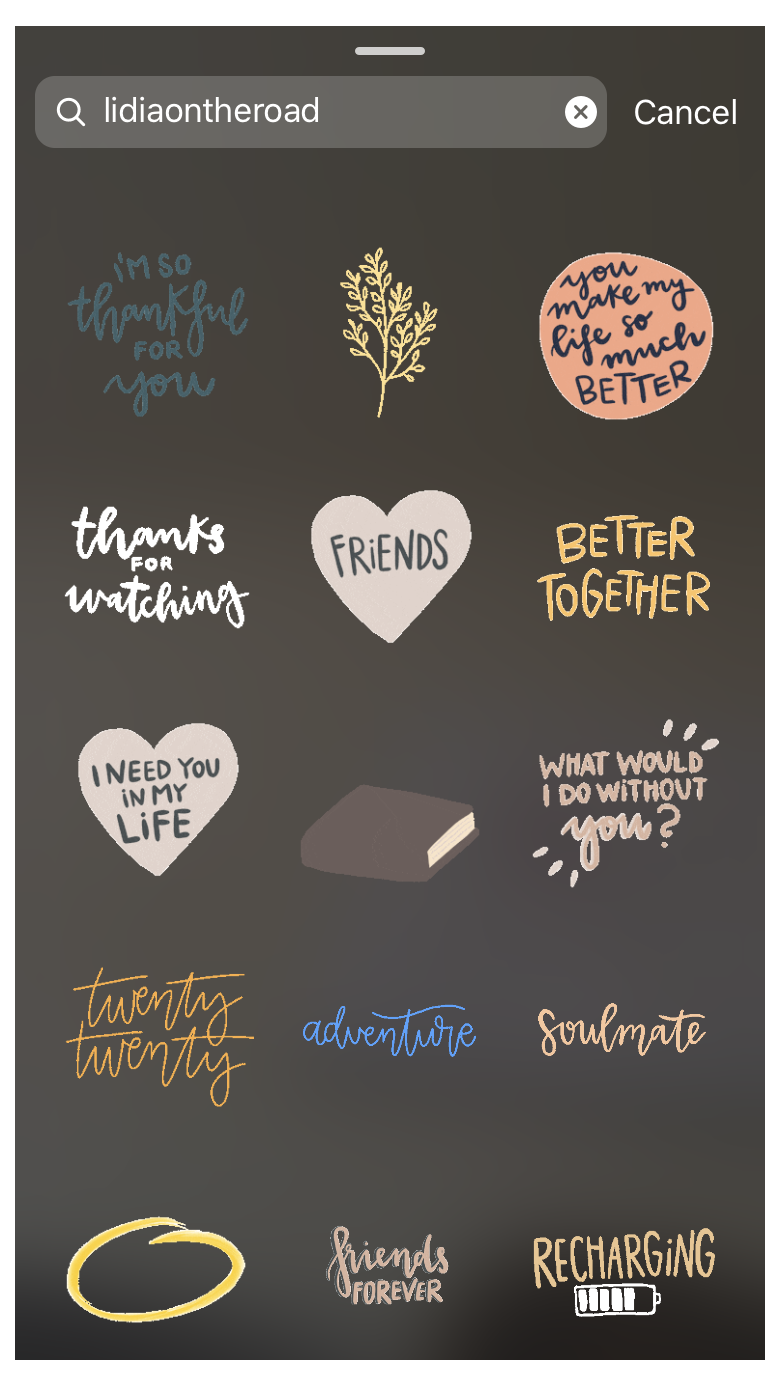 lidiaontheroad
Cancel
i'M SO
thankful
FOR
you
you
make my
life so
much
BETTER
thanks
FOR
watching
FRiENDS
BETTER
ToGETHER
I NEED YOU
iN MY
LiFE
WHAT WOULD
I DO WiTHOUT
you?
twenty
twenty
adventure
Soulmate
friends
FOREVER
RECHARGiNG